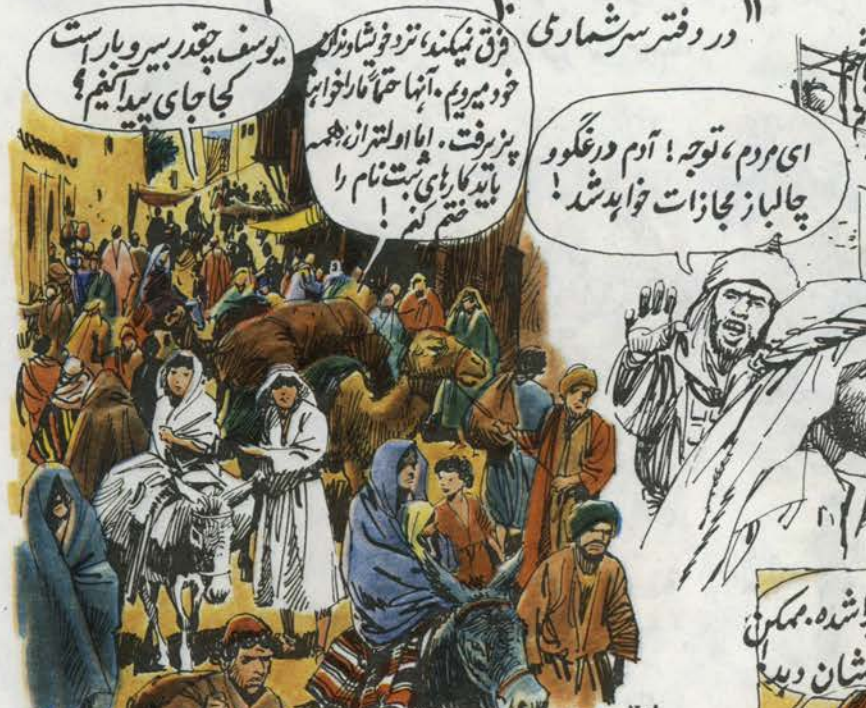 یوسف چقدر بیرو بار است
کجا جای پیدا کنیم؟
فرق نمیکند، نزد خویشاوندان
خود میرویم. آنها حتماً مارا خواهند
پزیرفت. اما اولتر از همه
باید کارهای ثبت نام را
ختم کنم !
در دفتر سرشماری
ای مردم، توجه! آدم درغگو و
چالباز مجازات خواهد شد !
شده. ممکن
شان دید